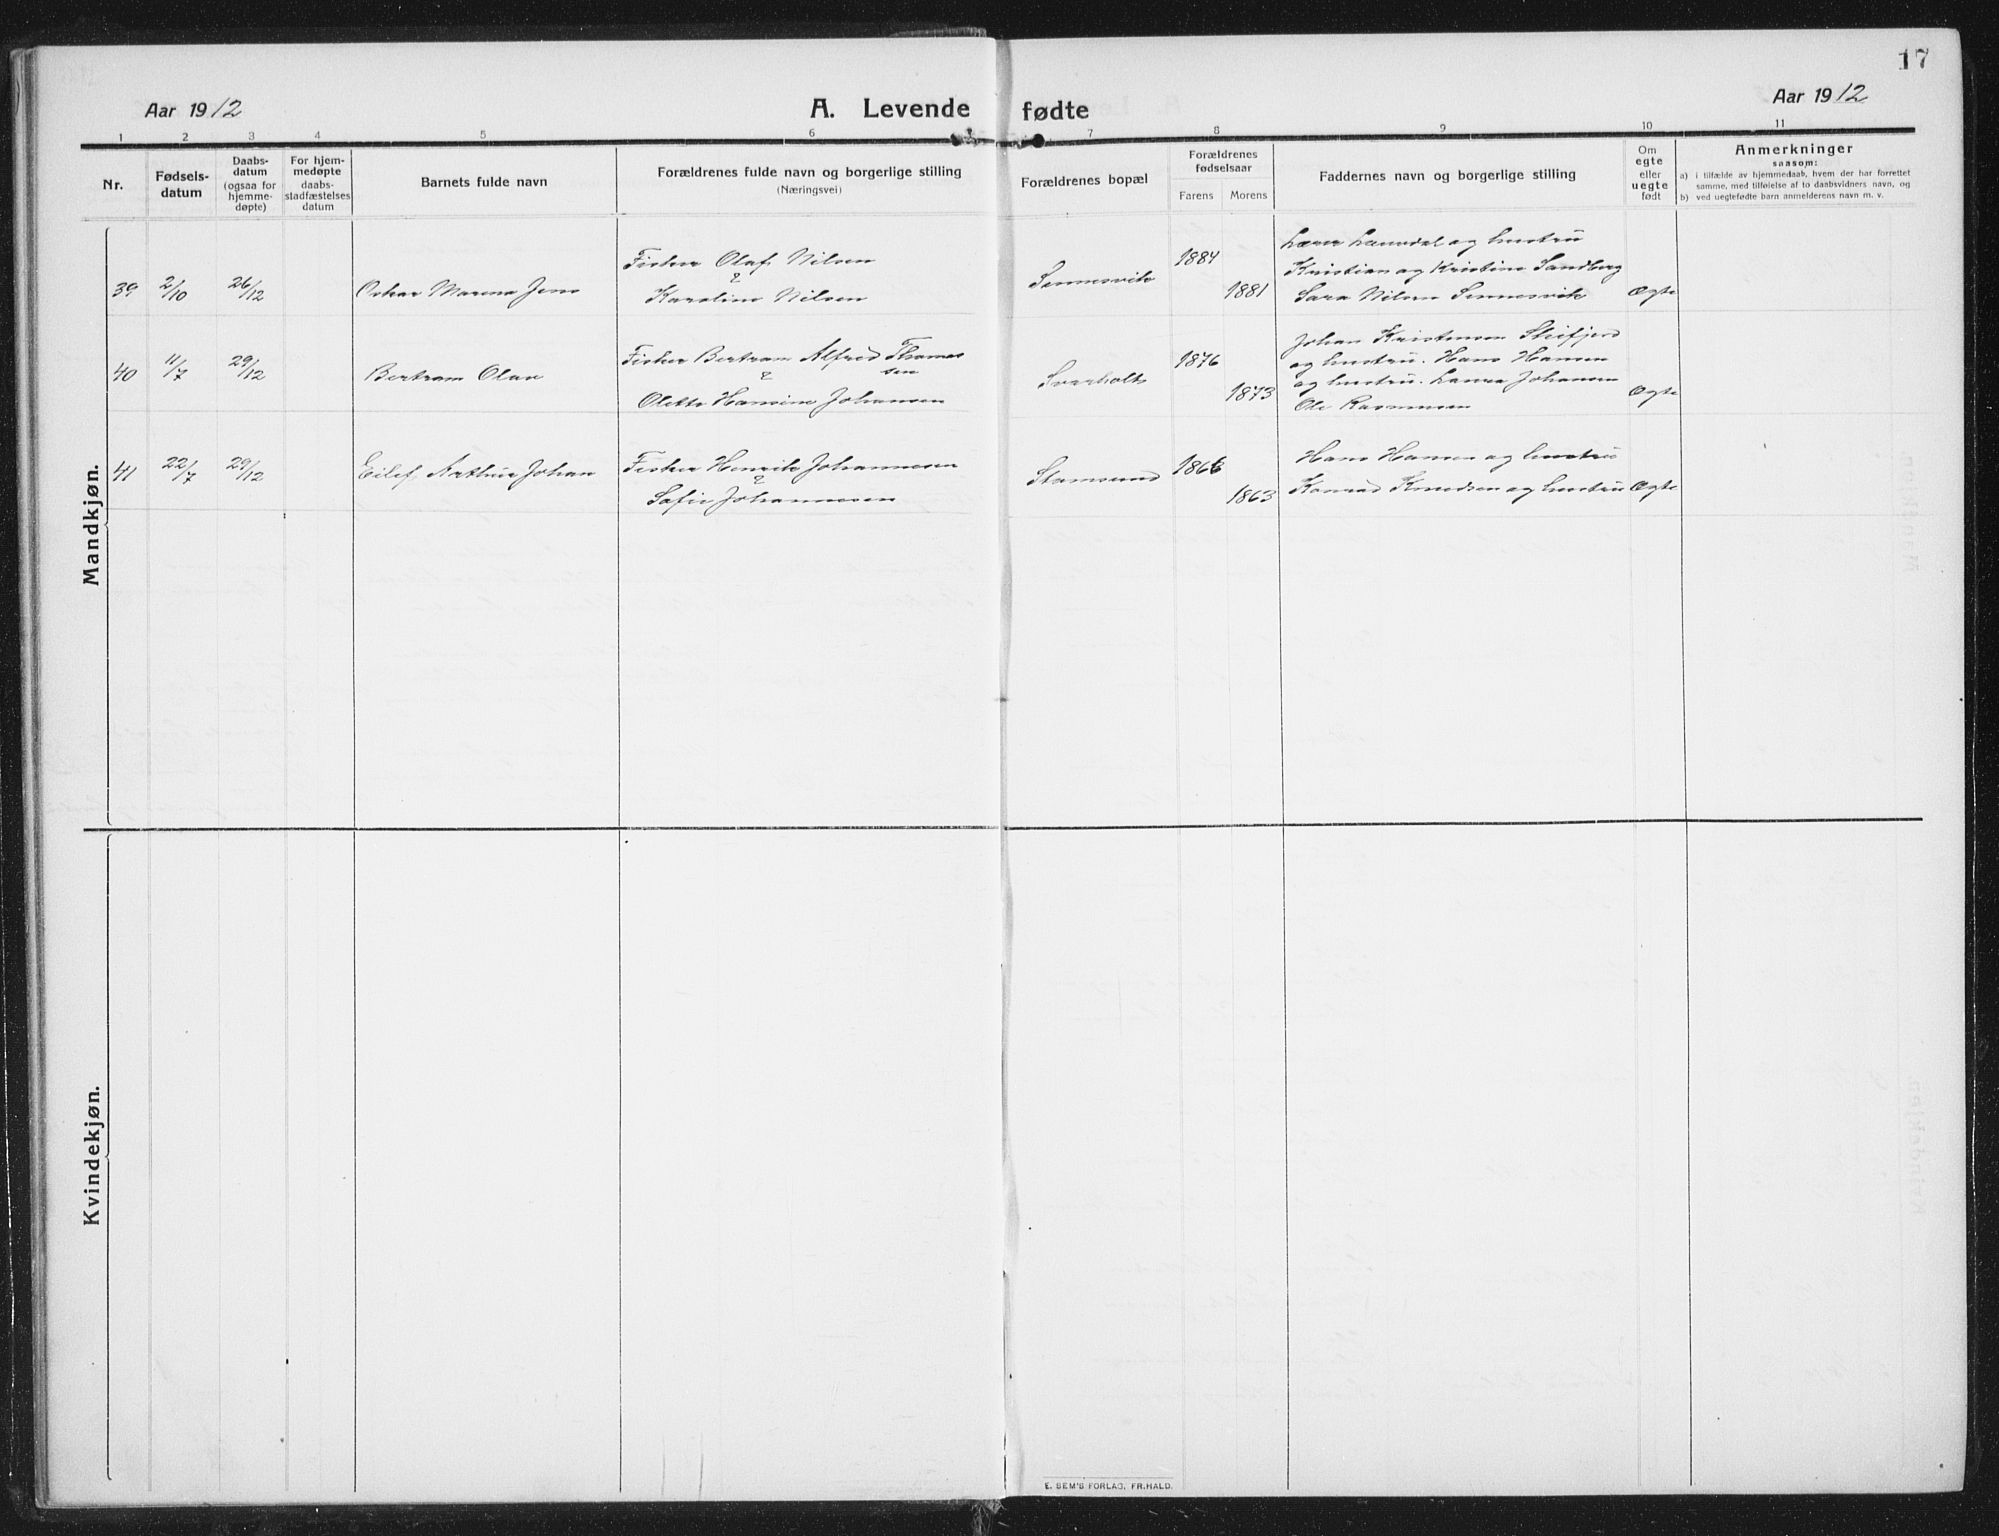 17
Aar 1912
A. Levende fødte
Aar 1912
1 2 3 4 5 6 7 8 9 10 11
Nr.
Fødsels-
datum
Daabs-
datum
(ogsaa for
hjemme-
døpte)
For hjem-
medøpte
daabs-
stadfæstelses
datum
Barnets fulde navn
Forældrenes fulde navn og borgerlige stilling
(Næringsvei)
Forældrenes bopæl
Forældrenes
fødselsaar
Farens Morens
Faddernes navn og borgerlige stilling
Om
egte
eller
uegte
født
Anmerkninger
saasom:
a) i tilfælde av hjemmedaab, hvem der har forrettet
samme, med tilføielse af to daabsvidners navn, og
b) ved uegtefødte barn anmelderens navn m. v.
Mandkjøn.
39 2/10 26/12 Oskar Marena Jens
Fisker Olaf Nilsen
&
Karoline Nilsen
Sennesvik
1884
1881
Lærer og hustru
Kristian og Kristine Sandberg
Sara Nilsen Sennesvik
Ægte
40 11/7 29/12 Bertram Olav
Fisker Bertram Alfred Thomas
sen
&
Olette Hansine Johansen
Svarholt
1876
1873
Johan Kristensen Steifjord
og hustru. Hans Hansen
og hustru. Laura Johansen
Ole Rasmussen
Ægte
41 22/7 29/12 Eilef Arthur Johan
Fisker Henrik Johannesen
&
Sofie Johannesen
Stamsund
1866
1863
Hans Hansen og hustru
Konrad Knudsen og hustru
Ægte
Kvindekjøn.
E. SEM'S FORLAG, FR.HALD.